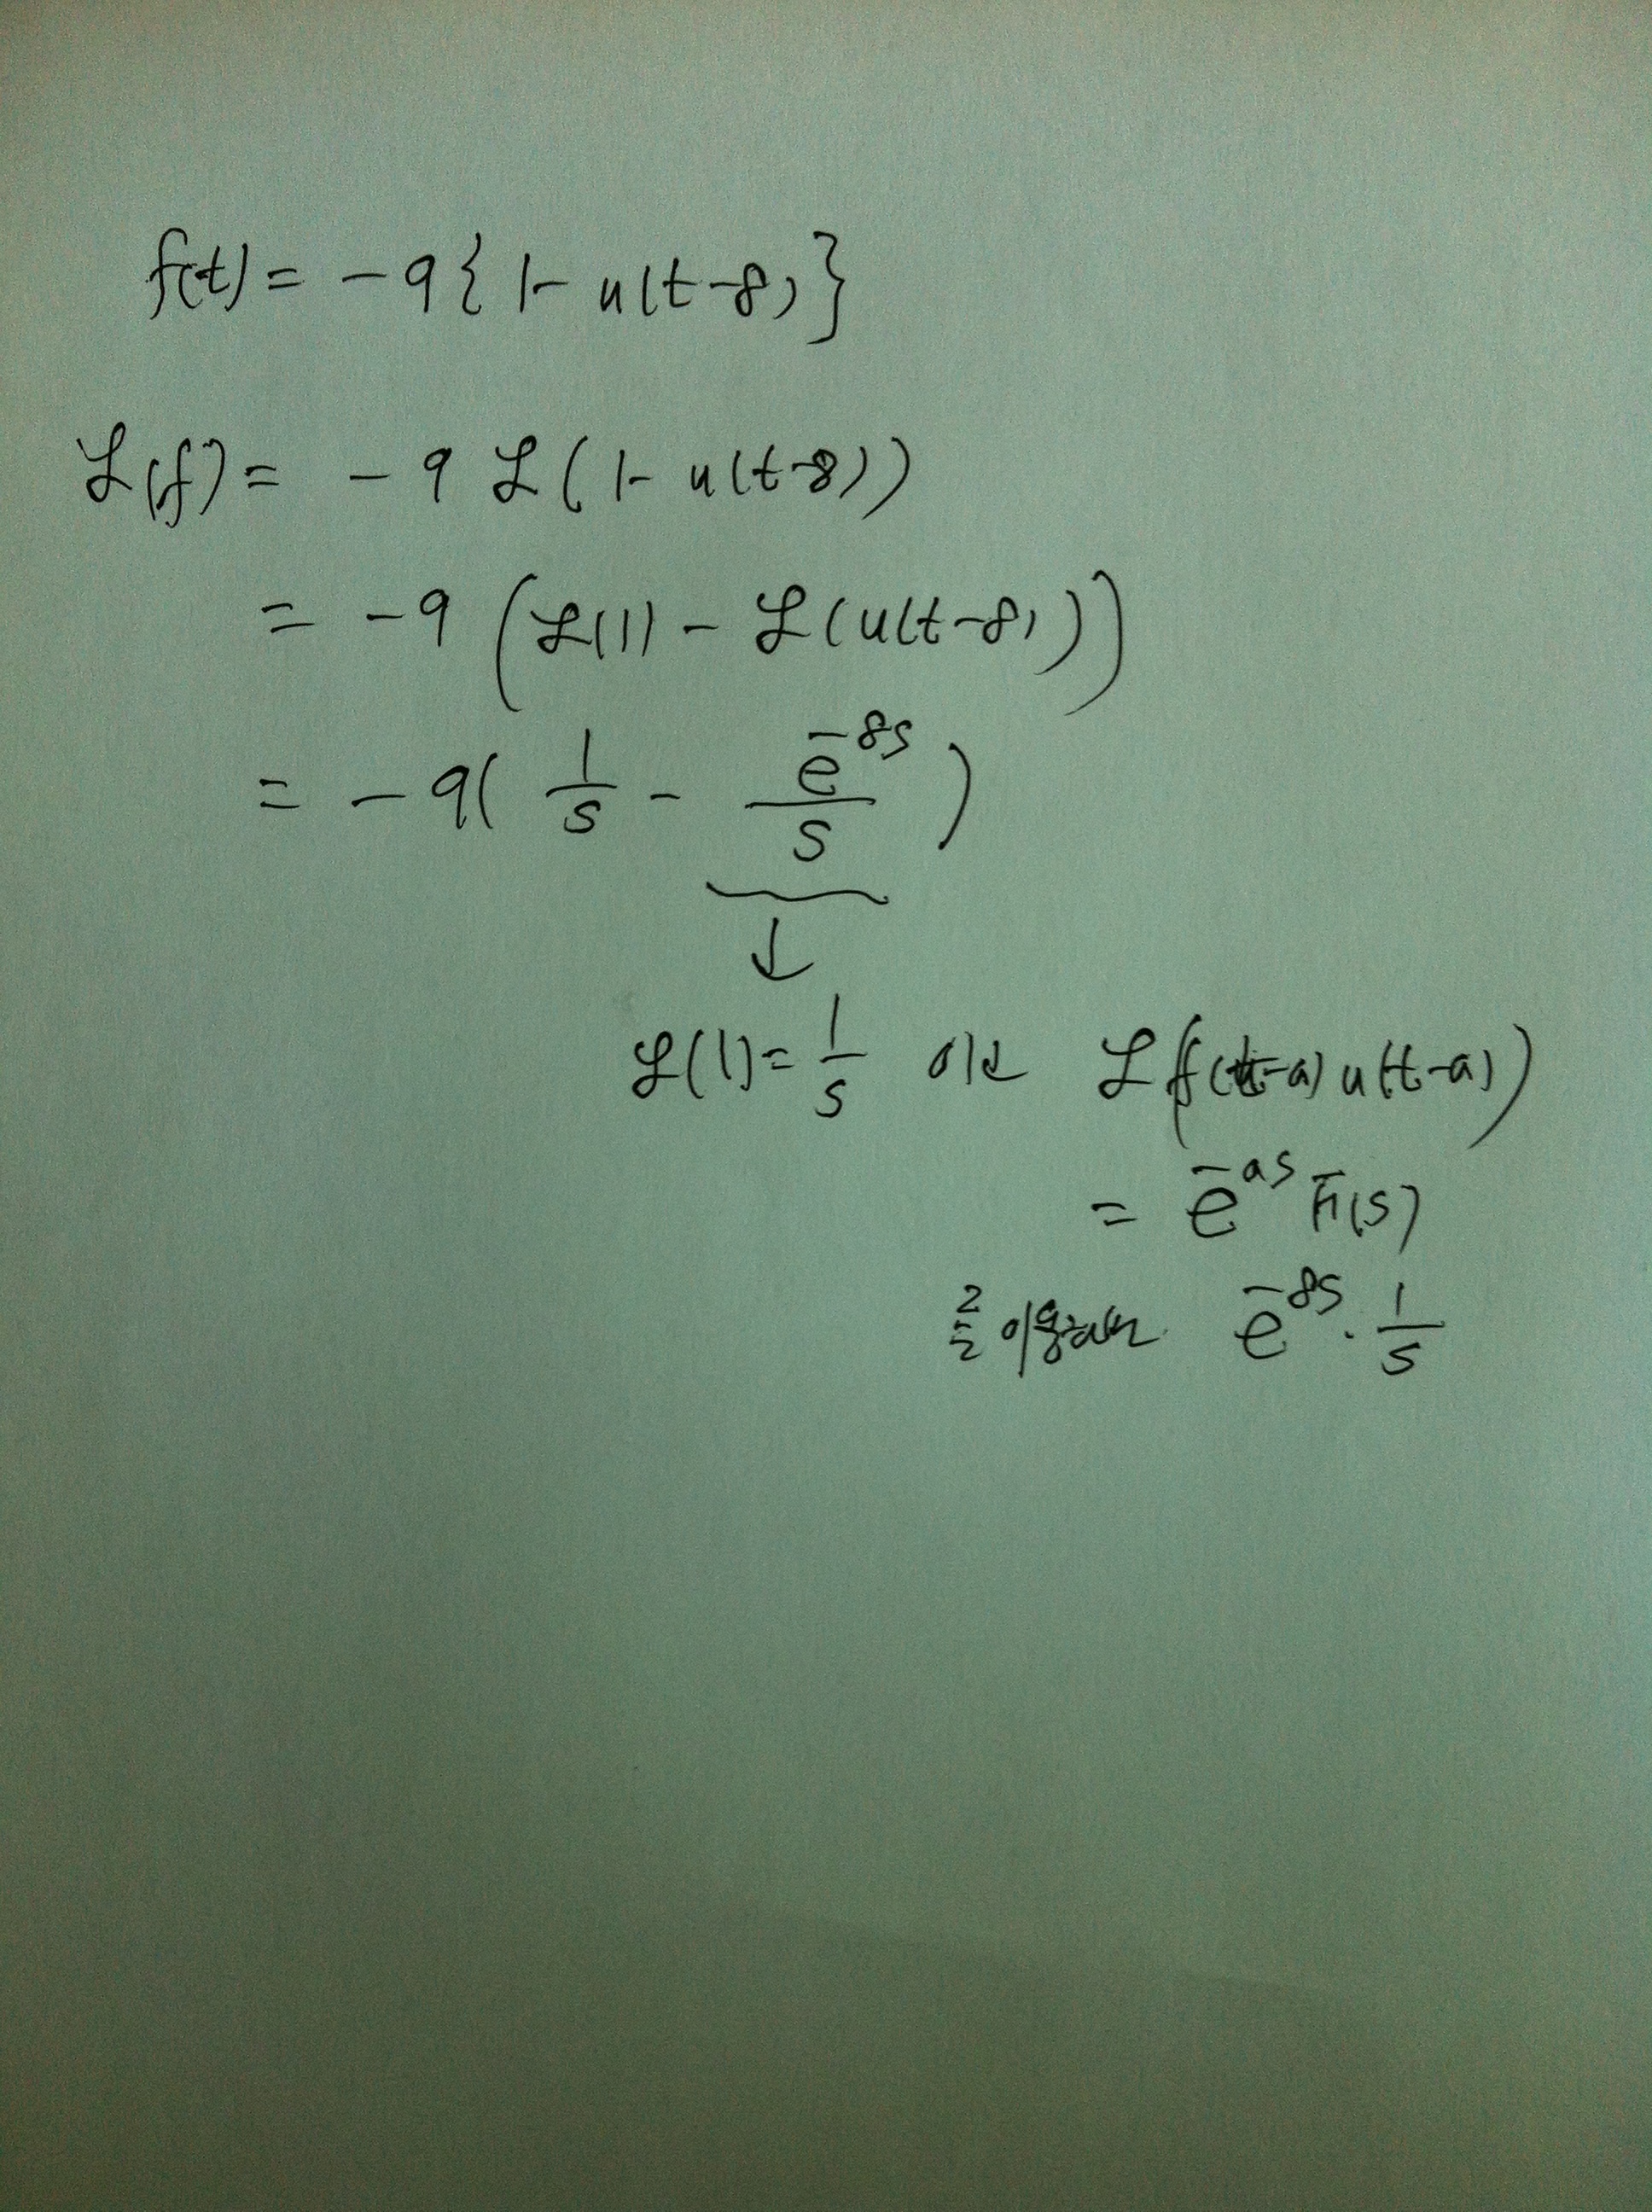 f(t) = -9{1-u(t-8)}
ℒ(f) = -9 ℒ(1-u(t-8))
= -9 (ℒ(1) - ℒ(u(t-8)))
= -9( 1/s - e^-8s/s )
↓
ℒ(1) = 1/s 이고 ℒ(f(t-a)u(t-a))
= e^-as F(s)
를 이용하면 e^-8s · 1/s